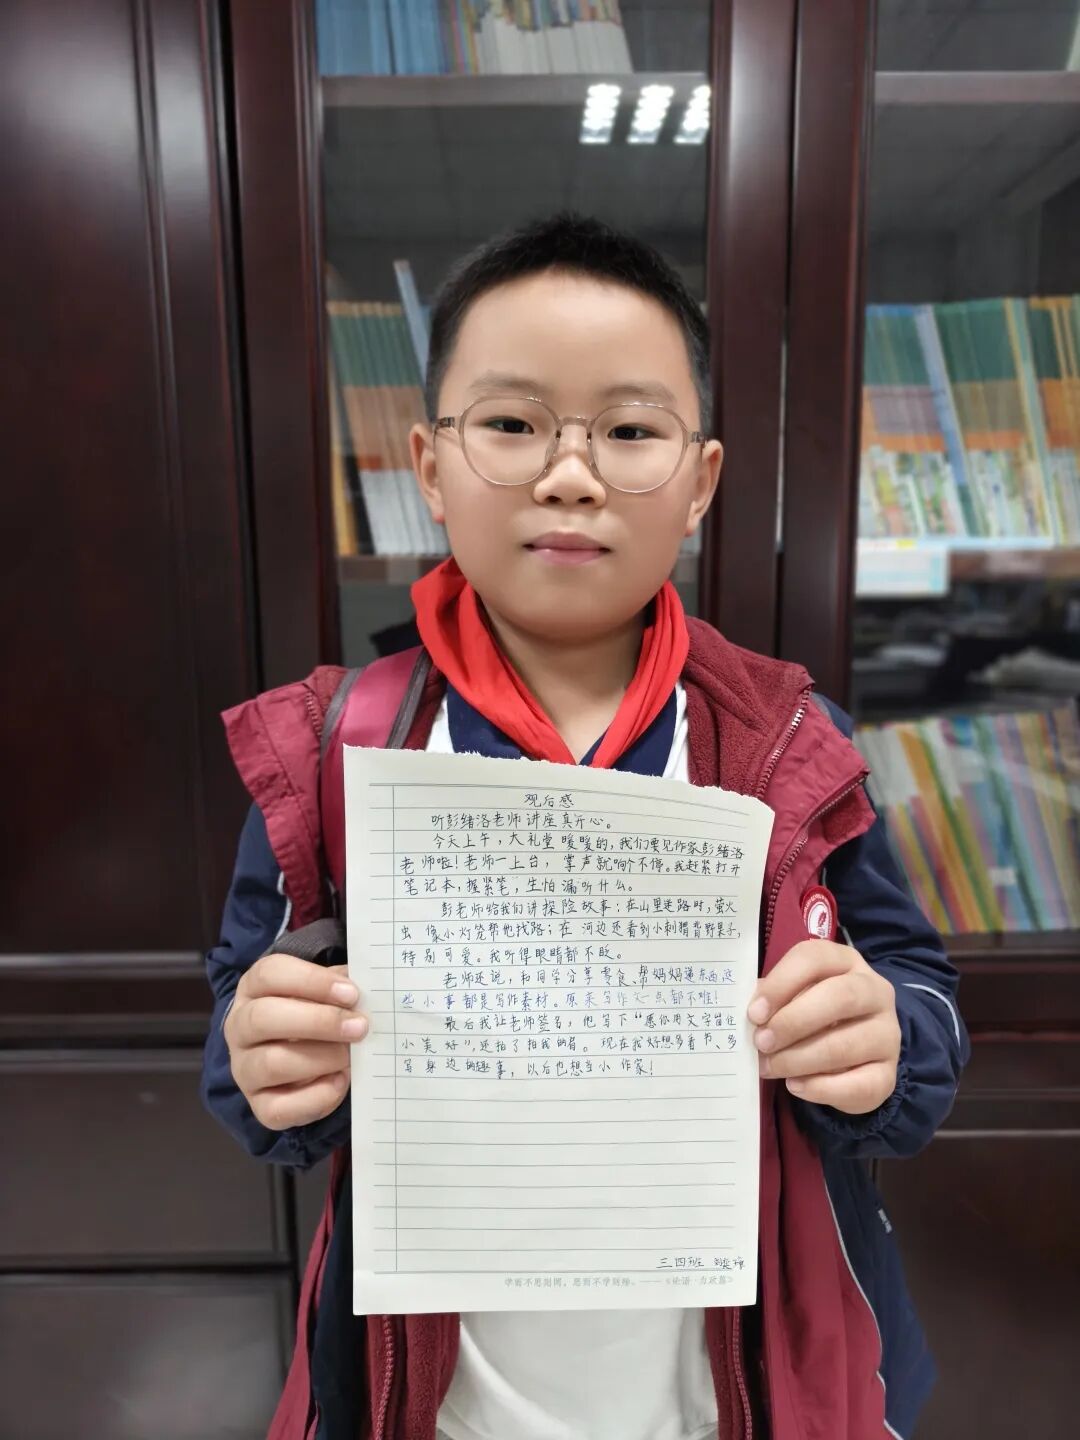 观后感
听彭绪洛老师讲座真开心。
今天上午，大礼堂暖暖的，我们要见作家彭绪洛
老师啦！老师一上台，掌声就响个不停。我赶紧打开
笔记本，握紧笔，生怕漏听什么。
彭老师给我们讲探险故事：在山里迷路时，萤火
虫像小灯笼帮他找路；在河边还看到小刺猬背野果子，
特别可爱。我听得眼睛都不眨。
老师还说，和同学分享零食、帮妈妈递东西，这
些小事都是写作素材。原来写作文一点都不难！
最后我让老师签名，他写下“愿你用文字留住
小美好”，还拍了拍我的肩。现在我好想多看书、多
写身边的趣事，以后也想当小作家！
三四班
学而不思则罔，思而不学则殆。——《论语·为政篇》